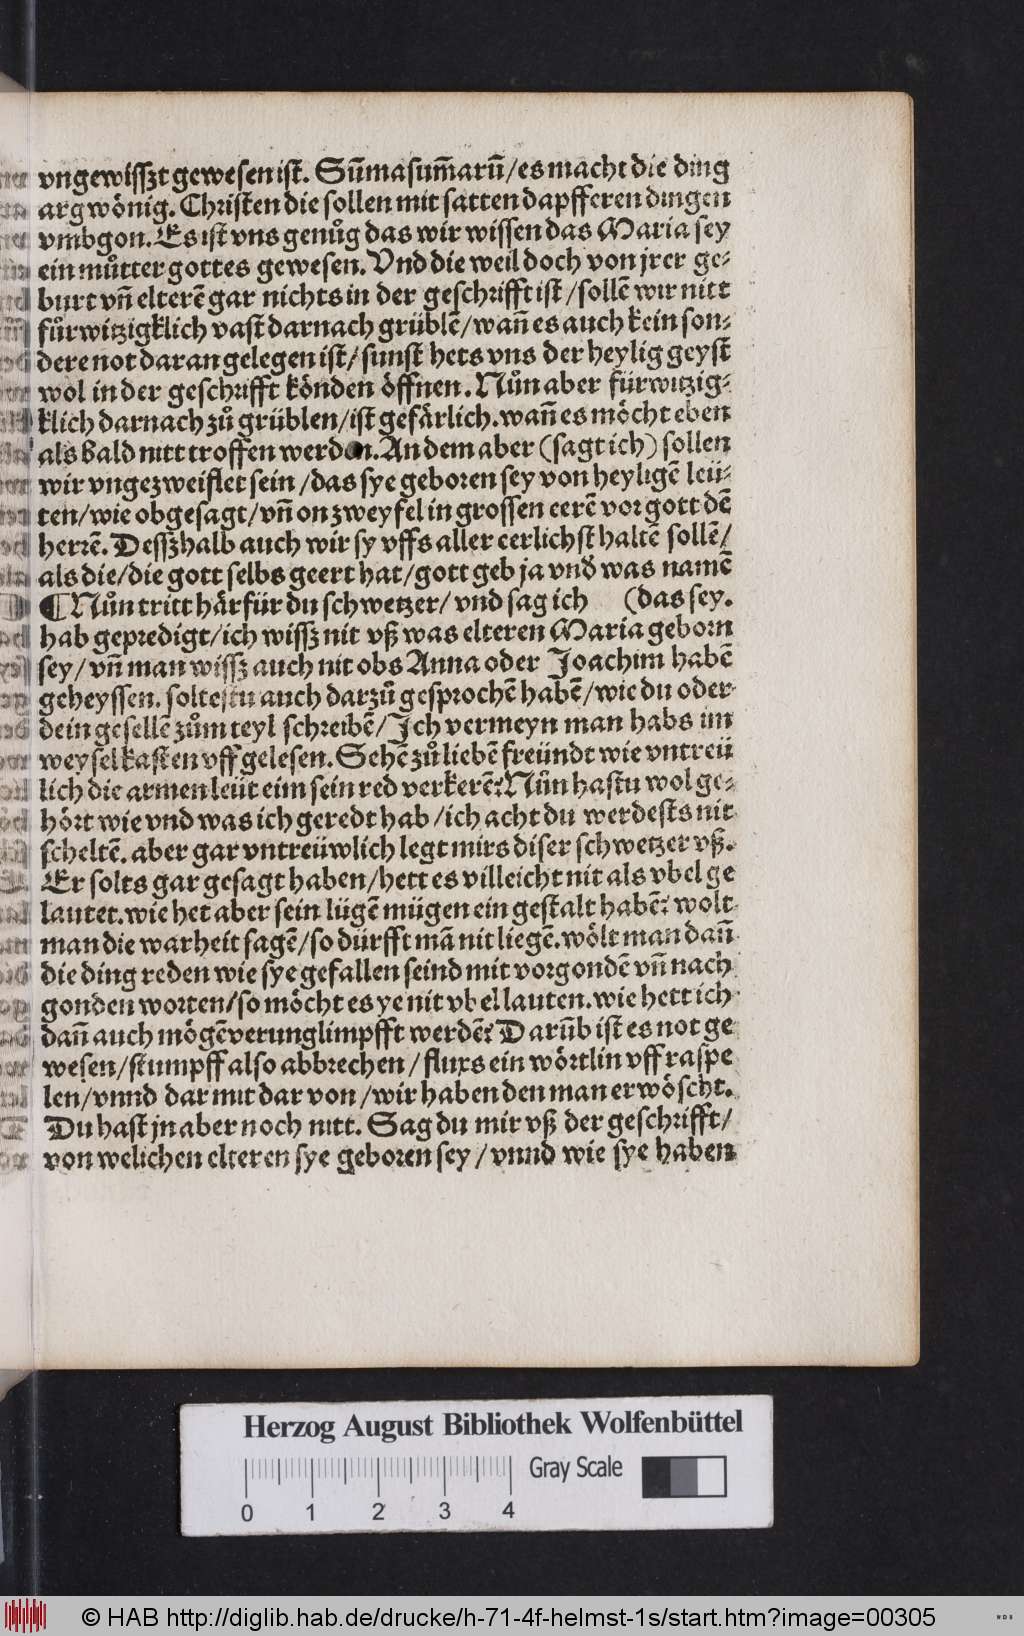 vngewisszt gewesen ist. Sum̄asum̄arū/es macht die ding
argwönig. Christen die sollen mit satten dapfferen dingen
vmbgon. Es ist vns genůg das wir wissen das Maria sey
ein můtter gottes gewesen. Vnd die weil doch von jrer ge-
burt vn̄ elterē gar nichts in der geschrifft ist/sollē wir nitt
fürwitzigklich vast darnach grüblē/wan̄ es auch kein son-
dere not daran gelegen ist/sunst hets vns der heylig geyst
wol in der geschrifft könden öffnen. Nůn aber fürwitzig-
klich darnach zů grüblen/ist gefärlich. wan̄ es möcht eben
als bald nitt troffen werden. An dem aber (sagt ich) sollen
wir vngezweiflet sein/das sye geboren sey von heyligē leü-
ten/wie obgesagt/vn̄ on zweyfel in grossen eerē vor gott dē
herrē. Desszhalb auch wir sy vffs aller eerlichst haltē sollē/
als die/die gott selbs geert hat/gott geb ja vnd̄ was namē
¶ Nůn tritt härfür du schwetzer/vnd sag ich (das sey.
hab gepredigt/ich wissz nit vß was elteren Maria geborn
sey/vn̄ man wissz auch nit obs Anna oder Joachim habē
geheyssen. soltestu auch darzů gesprochē habē/wie du oder
dein gesellē zům teyl schreibē/Ich vermeyn man habs im
weyselkasten vff gelesen. Sehē zů liebē freündt wie vntreü
lich die armen leüt eim sein red verkerē? Nůn hastu wol ge-
hört wie vnd was ich geredt hab/ich acht du werdests nit
scheltē. aber gar vntreüwlich legt mirs diser schwetzer vß.
Er solts gar gesagt haben/hett es villeicht nit als vbel ge
lautet. wie het aber sein lügē mügen ein gestalt habē? wolt
man die warheit sagē/so dürfft mā nit liegē. wölt man dan̄
die ding reden wie sye gefallen seind mit vorgondē vn̄ nach
gonden worten/so möcht es ye nit vbel lauten. wie hett ich
dan̄ auch mögē verunglimpfft werdē? Darūb ist es not ge
wesen/stumpff also abbrechen/fluxs ein wörtlin vff raspe
len/vnnd dar mit dar von/wir haben den man erwöscht.
Du hast jn aber noch nitt. Sag du mir vß der geschrifft/
von welichen elteren sye geboren sey/vnnd wie sye haben
Herzog August Bibliothek Wolfenbüttel
Gray Scale
0 1 2 3 4
© HAB http://diglib.hab.de/drucke/h-71-4f-helmst-1s/start.htm?image=00305